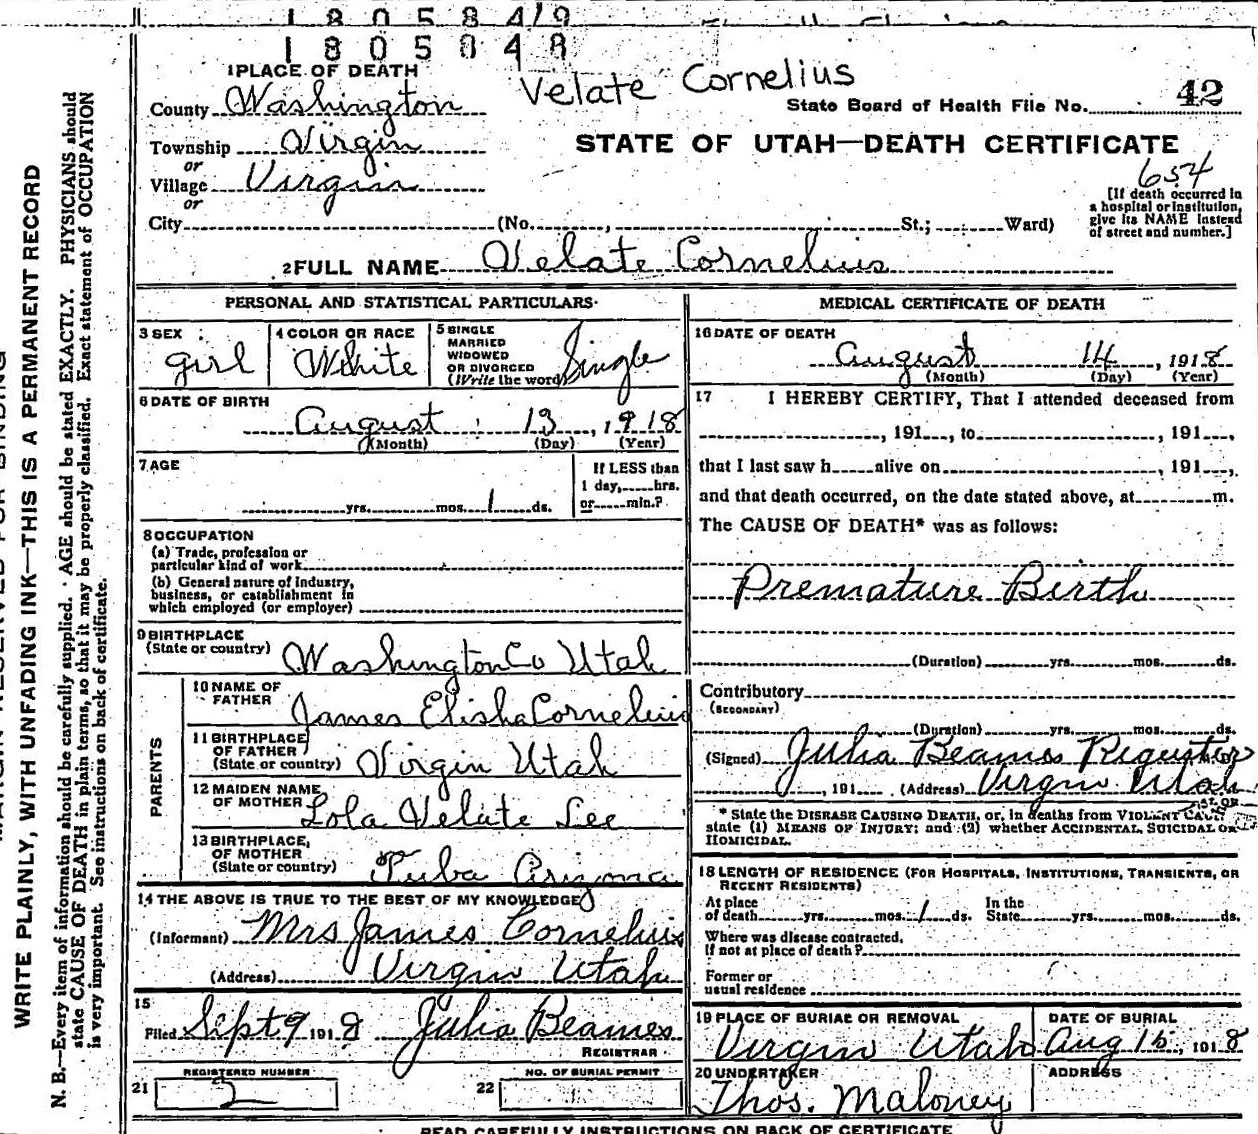 1 8 0 5 8 4/9
1 8 0 5 8 4 8
1 PLACE OF DEATH
Velate Cornelius
County Washington
State Board of Health File No. 42
Township Virgin
STATE OF UTAH—DEATH CERTIFICATE
or
654
Village Virgin
or
[If death occurred in
a hospital or institution,
give its NAME instead
of street and number.]
City (No. , St.; Ward)
2 FULL NAME Velate Cornelius
PERSONAL AND STATISTICAL PARTICULARS
3 SEX
girl
4 COLOR OR RACE
White
5 SINGLE
MARRIED
WIDOWED
OR DIVORCED
(Write the word) Single
6 DATE OF BIRTH
August 13, 1918
(Month) (Day) (Year)
7 AGE
If LESS than
1 day, hrs.
or min.?
yrs. mos. 1 ds.
8 OCCUPATION
(a) Trade, profession or
particular kind of work
(b) General nature of industry,
business, or establishment in
which employed (or employer)
9 BIRTHPLACE
(State or country) Washington Co Utah
PARENTS
10 NAME OF
FATHER James Elisha Cornelius
11 BIRTHPLACE
OF FATHER
(State or country) Virgin Utah
12 MAIDEN NAME
OF MOTHER Lola Velate Lee
13 BIRTHPLACE,
OF MOTHER
(State or country) Tuba Arizona
14 THE ABOVE IS TRUE TO THE BEST OF MY KNOWLEDGE
(Informant) Mrs James Cornelius
(Address) Virgin Utah
15
Filed Sept 9 1918 Julia Beames
REGISTRAR
REGISTERED NUMBER
21 2
NO. OF BURIAL PERMIT
22
MEDICAL CERTIFICATE OF DEATH
16 DATE OF DEATH
August 14, 1918
(Month) (Day) (Year)
17 I HEREBY CERTIFY, That I attended deceased from
, 191 , to , 191 ,
that I last saw h alive on , 191 ,
and that death occurred, on the date stated above, at m.
The CAUSE OF DEATH* was as follows:
Premature Birth
(Duration) yrs. mos. ds.
Contributory
(SECONDARY)
(Duration) yrs. mos. ds.
(Signed) Julia Beames Registor M.D.
, 191 (Address) Virgin Utah
* State the DISEASE CAUSING DEATH, or, in deaths from VIOLENT
state (1) MEANS OF INJURY; and (2) whether ACCIDENTAL, SUICIDAL OR
HOMICIDAL.
18 LENGTH OF RESIDENCE (FOR HOSPITALS, INSTITUTIONS, TRANSIENTS, OR
RECENT RESIDENTS)
At place
of death yrs. mos. 1 ds.
In the
State yrs. mos. ds.
Where was disease contracted,
if not at place of death?
Former or
usual residence
19 PLACE OF BURIAL OR REMOVAL
Virgin Utah
DATE OF BURIAL
Aug 15, 1918
20 UNDERTAKER
Thos. Maloney
ADDRESS
READ CAREFULLY INSTRUCTIONS ON BACK OF CERTIFICATE
WRITE PLAINLY, WITH UNFADING INK—THIS IS A PERMANENT RECORD
N. B.—Every item of information should be carefully supplied. AGE should be stated EXACTLY. PHYSICIANS should
state CAUSE OF DEATH in plain terms, so that it may be properly classified. Exact statement of OCCUPATION
is very important. See instructions on back of certificate.